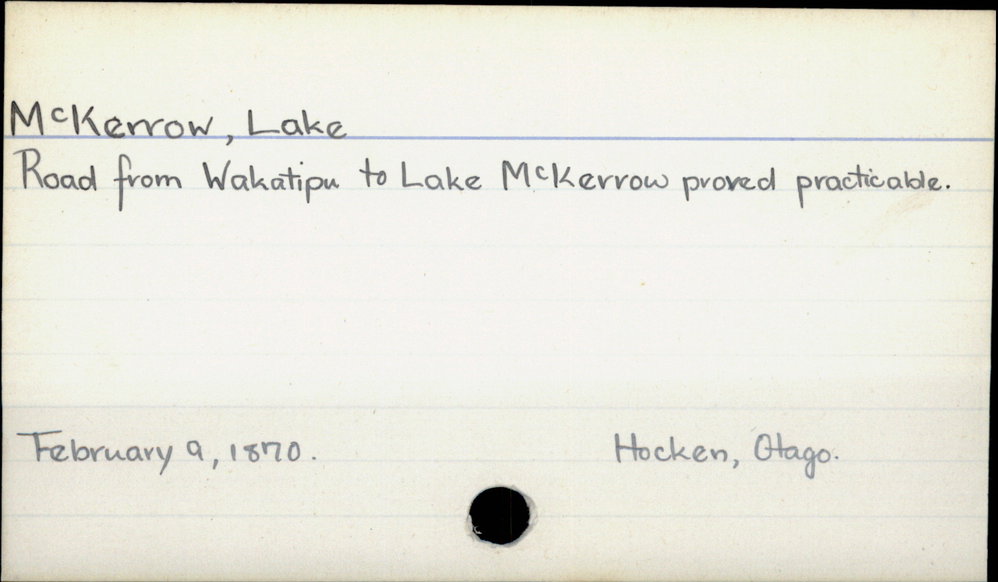 McKerrow, Lake
Road from Wakatipu to Lake McKerrow proved practicable.
February 9, 1870. Hocken, Otago.